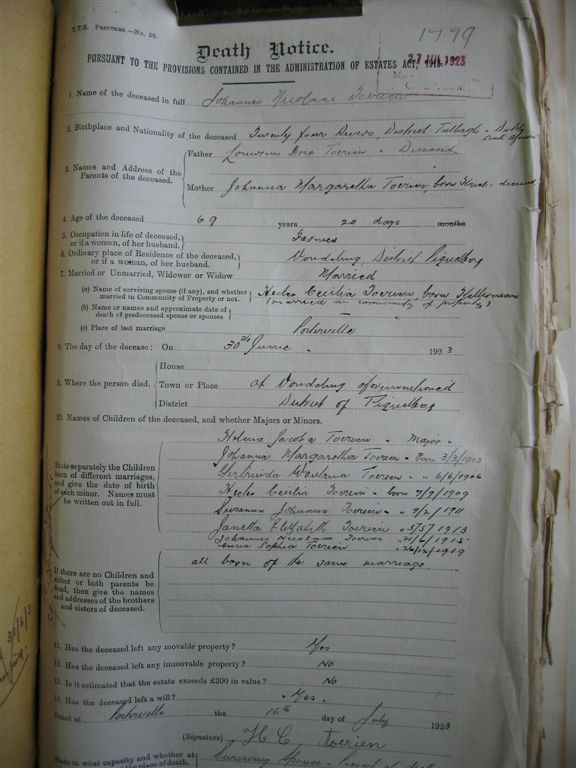 T.T.H. Printers—No. 56.
1779
Death Notice.
27 JUL 1923
PURSUANT TO THE PROVISIONS CONTAINED IN THE ADMINISTRATION OF ESTATES ACT,
1. Name of the deceased in full Johannes Nicolaas Toerien
2. Birthplace and Nationality of the deceased Twenty Four Rivers, District Tulbagh - Dutch
South African
3. Names and Address of the Parents of the deceased.
Father Toerien - Deceased
Mother Johanna Margaretha Toerien, born - deceased
4. Age of the deceased 69 years 20 days months
5. Occupation in life of deceased, or if a woman, of her husband. Farmer
6. Ordinary place of Residence of the deceased, or if a woman, of her husband. Vondeling, District Piquetberg
7. Married or Unmarried, Widower or Widow Married
(a) Name of surviving spouse (if any), and whether married in Community of Property or not. Hester Cecilia Toerien, born
(married in community of property)
(b) Name or names and approximate date of death of predeceased spouse or spouses
(c) Place of last marriage Porterville
8. The day of the decease: On 30th June 1923
9. Where the person died.
House
Town or Place at Vondeling aforementioned
District District of Piquetberg
10. Names of Children of the deceased, and whether Majors or Minors.
State separately the Children born of different marriages, and give the date of birth of each minor. Names must be written out in full.
Helena Jacoba Toerien - Major -
Johanna Margaretha Toerien - Born 3/3/1903
Gertruida Toerien - " 6/6/1906
Hester Cecilia Toerien - born 7/9/1909
Susanna Johanna Toerien - " 9/2/1911
Janetta Elizabeth Toerien " 5/5/1913
Johannes Nicolaas Toerien " 21/6/1915
Anna Sophia Toerien " 26/12/1919
all born of the same marriage
If there are no Children and either or both parents be dead, then give the names and addresses of the brothers and sisters of deceased.
11. Has the deceased left any movable property? Yes
12. Has the deceased left any immovable property? No
13. Is it estimated that the estate exceeds £300 in value? No
14. Has the deceased left a will? - Yes -
Dated at Porterville the 16th day of July 1923
(Signature) H C Toerien
State in what capacity and whether at Surviving Spouse -
the place of death,